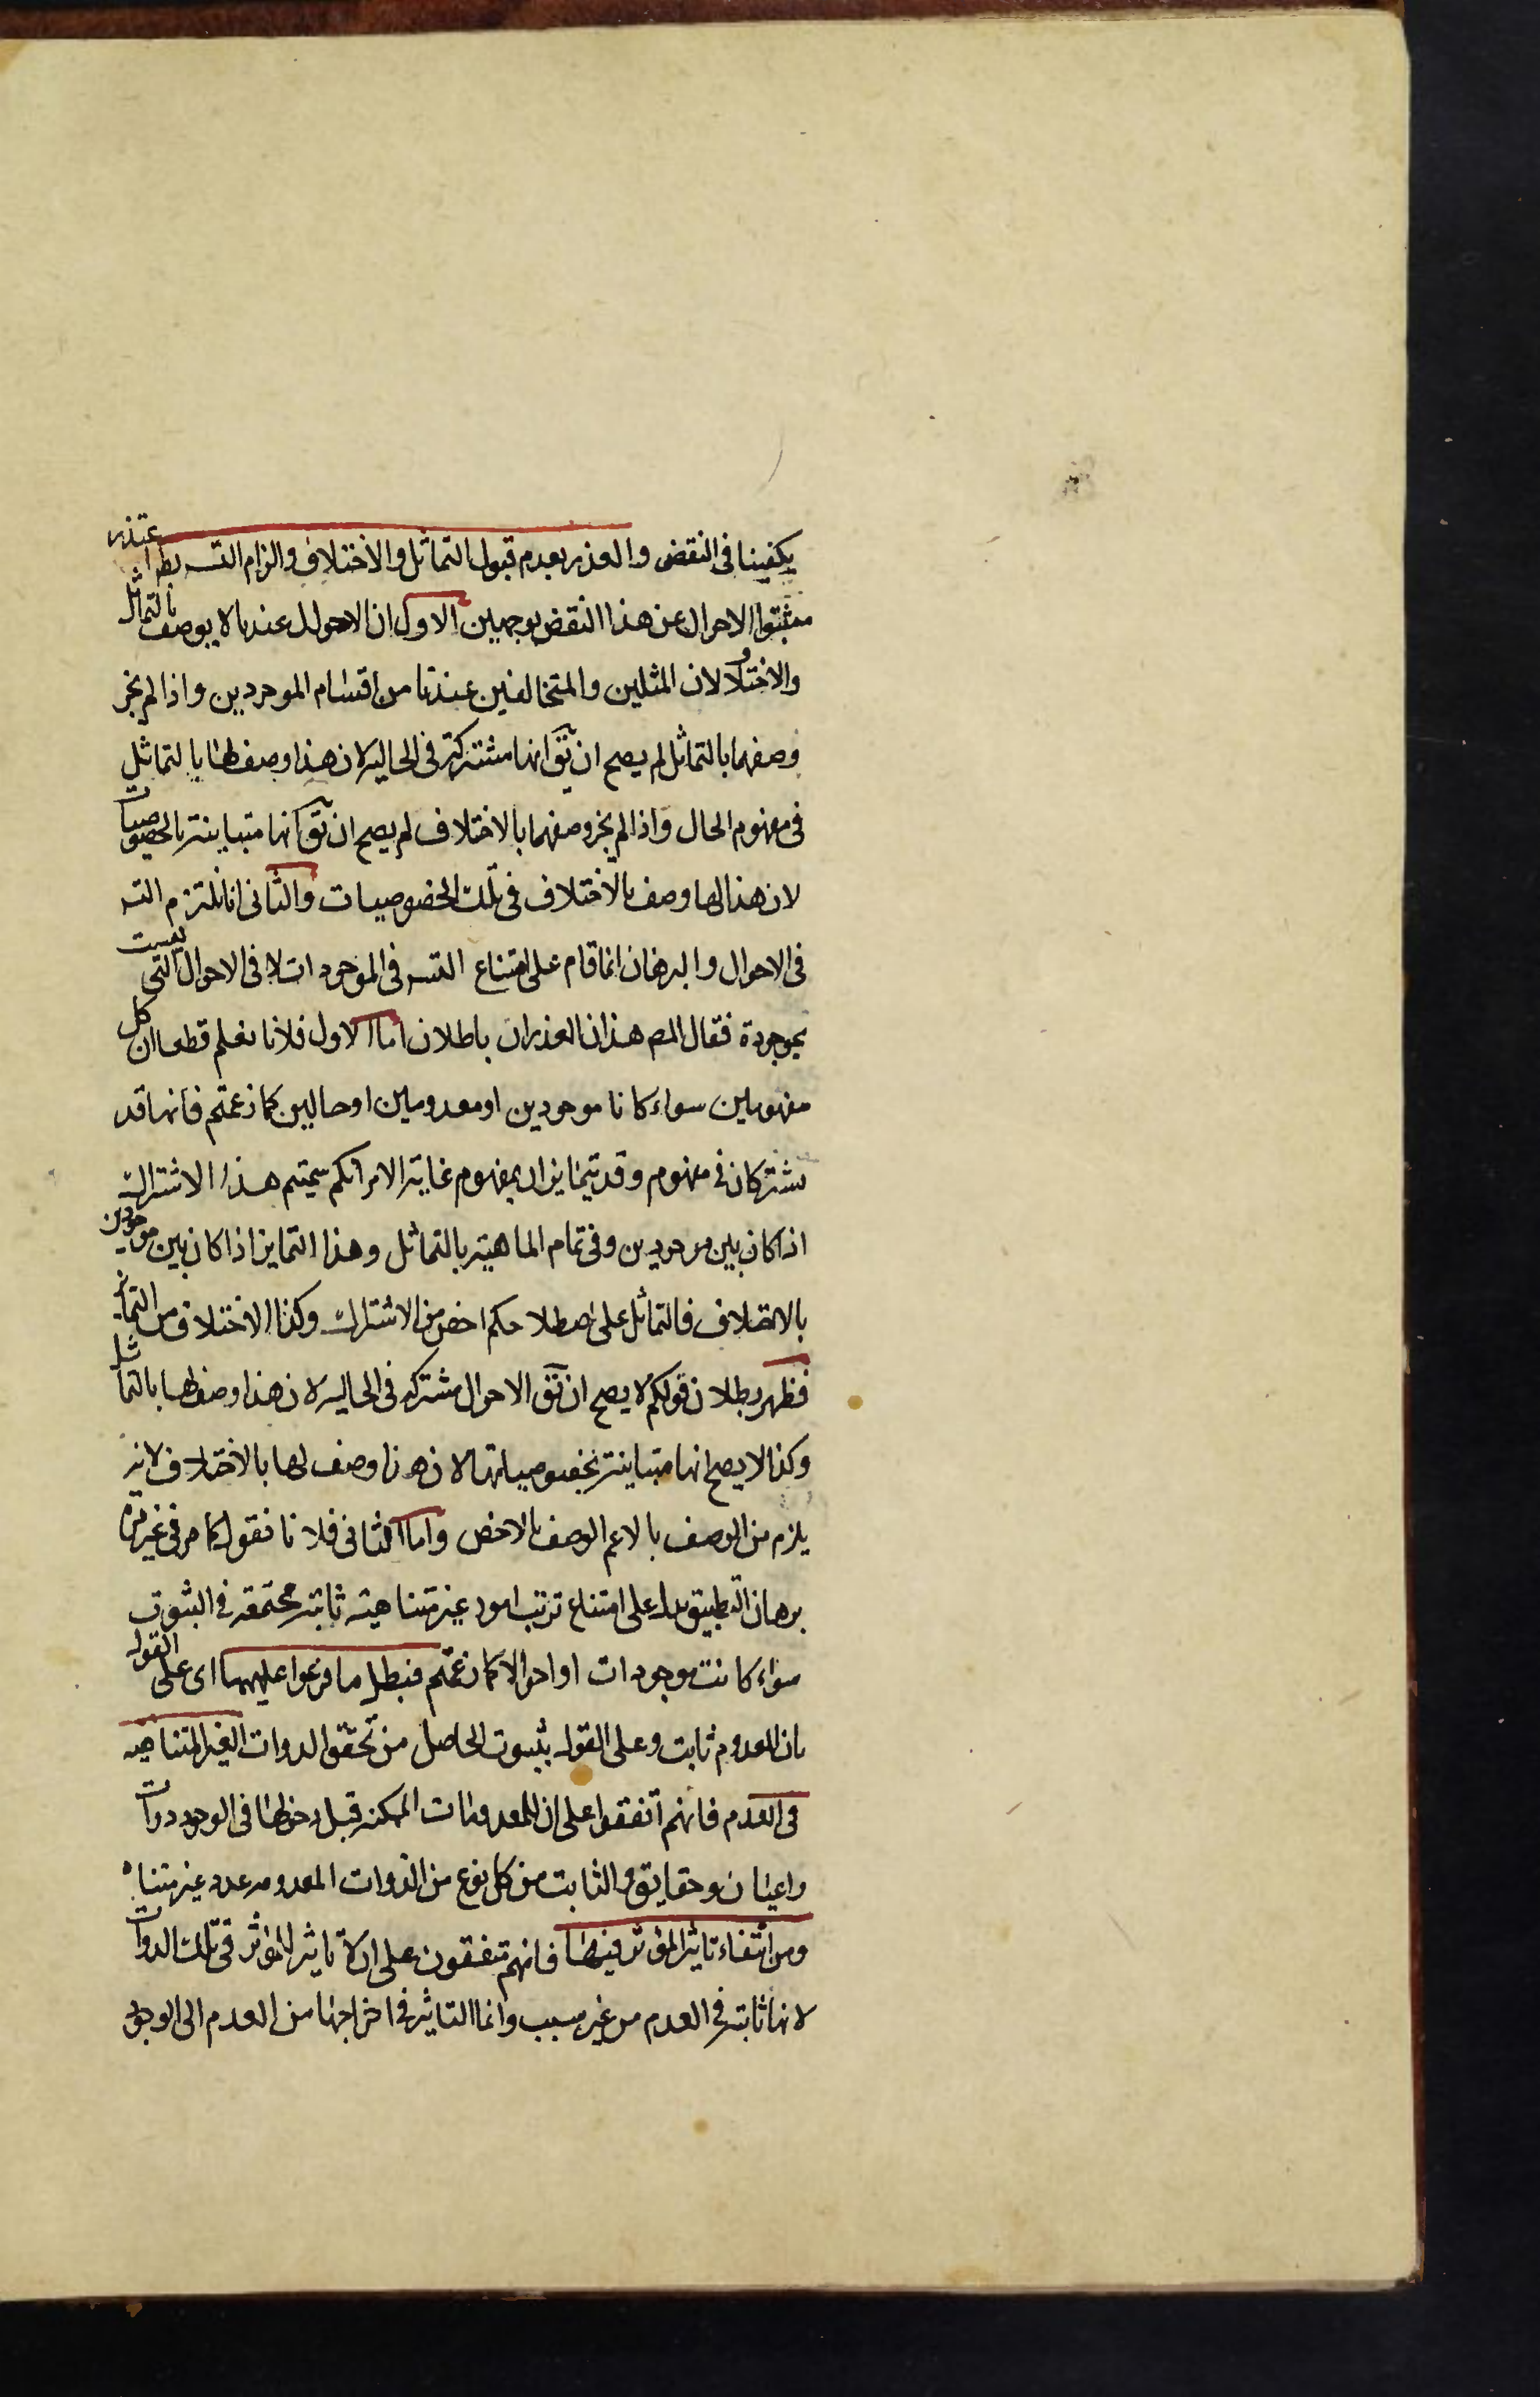 يكفينا فى النقض والعذر بعدم قبول التماثل والاختلاف والزام التسـ بط اعتذر
مثبتوا الاحوال عن هذا النقض بوجهين الاول ان الاحوال عندنا لا يوصف بالتماثل
والاختلاف لان المثلين والمتخالفين عندنا من اقسام الموجودين واذا لم يجز
وصفها بالتماثل لم يصح ان يق انها مشتركة فى الحالية لان هذا وصف لها بالتماثل
فى مفهوم الحال واذا لم يجز وصفها بالاختلاف لم يصح ان يق انها متباينة بالخصوصيات
لان هذا لها وصف بالاختلاف فى تلك الخصوصيات والثانى انا نلتزم التسـ
فى الاحوال والبرهان انما قام على امتناع التسـ فى الموجودات لا فى الاحوال التى ليست
بموجودة فقال المص هذان العذران باطلان اما الاول فلانا نعلم قطعا ان كل
مفهومين سواء كانا موجودين او معدومين او حالين كما زعمتم فانها قد
يشتركان فى مفهوم وقد يتمايزان بمفهوم غاية الامر انكم سميتم هذا الاشتراك
اذا كان بين موجودين وفى تمام الماهية بالتماثل وهذا التمايز اذا كان بين موجودين
بالاختلاف فالتماثل على اصطلاحكم اخص من الاشتراك وكذا الاختلاف من التمايز
فظهر بطلان قولكم لا يصح ان يق الاحوال مشتركة فى الحالية لان هذا وصف لها بالتماثل
وكذا لا يصح انها متباينة بخصوصياتها لان هذا وصف لها بالاختلاف لانه
يلزم من الوصف بالاعم الوصف بالاخص واما الثانى فلانا نقول كما مر فى غير مرة
برهان التطبيق يدل على امتناع ترتب امور غير متناهية ثابتة مجتمعة فى الثبوت
سواء كانت موجودات او احوالا كما زعمتم فبطل ما فرعوا عليهما اى على القول
بان المعدوم ثابت وعلى القول بثبوت الحاصل من تحقق الدوات الغير المتناهية
فى العدم فانهم اتفقوا على ان للمعدومات الممكنة قبل دخولها فى الوجود دوات
واعيان وحقايق والثابت من كل نوع من الذوات المعدومة عدد غير متناه
ومن انتفاء تاثير المؤثر فيها فانهم متفقون على ان لا تاثير للمؤثر فى تلك الدوات
لانها ثابتة فى العدم من غير سبب وانما التاثير فى اخراجها من العدم الى الوجود